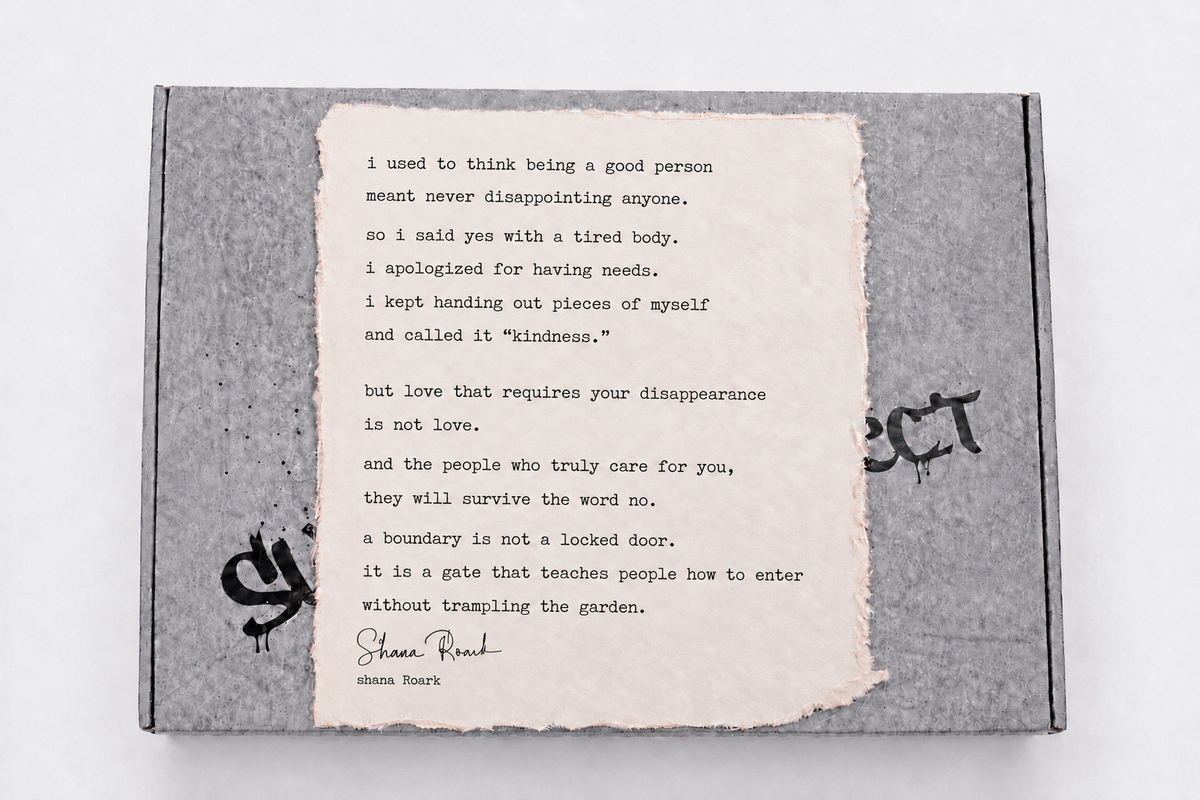 i used to think being a good person
meant never disappointing anyone.
so i said yes with a tired body.
i apologized for having needs.
i kept handing out pieces of myself
and called it “kindness.”
but love that requires your disappearance
is not love.
and the people who truly care for you,
they will survive the word no.
a boundary is not a locked door.
it is a gate that teaches people how to enter
without trampling the garden.
Shana Roark
shana Roark